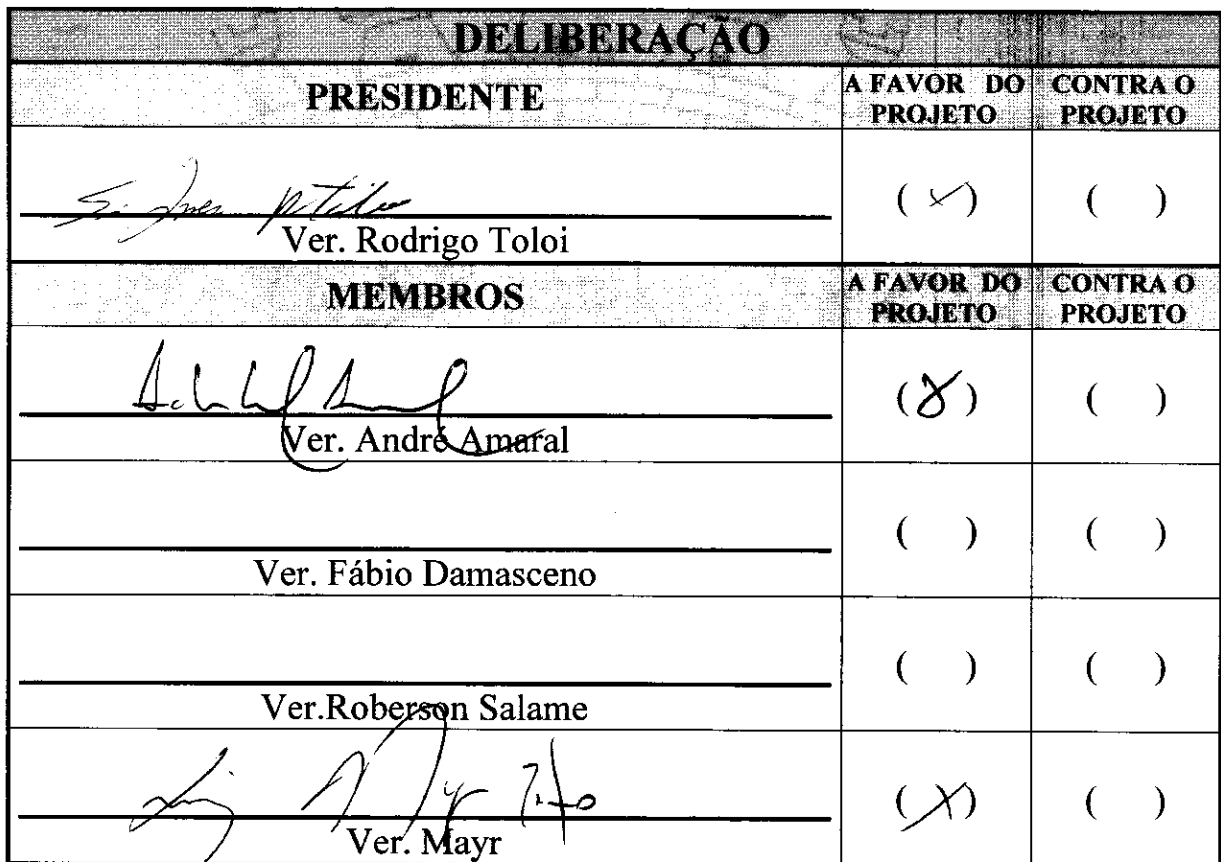 DELIBERAÇÃO
PRESIDENTE A FAVOR DO PROJETO CONTRA O PROJETO
( x ) ( )
Ver. Rodrigo Toloi
MEMBROS A FAVOR DO PROJETO CONTRA O PROJETO
( x ) ( )
Ver. André Amaral
( ) ( )
Ver. Fábio Damasceno
( ) ( )
Ver.Roberson Salame
( x ) ( )
Ver. Mayr